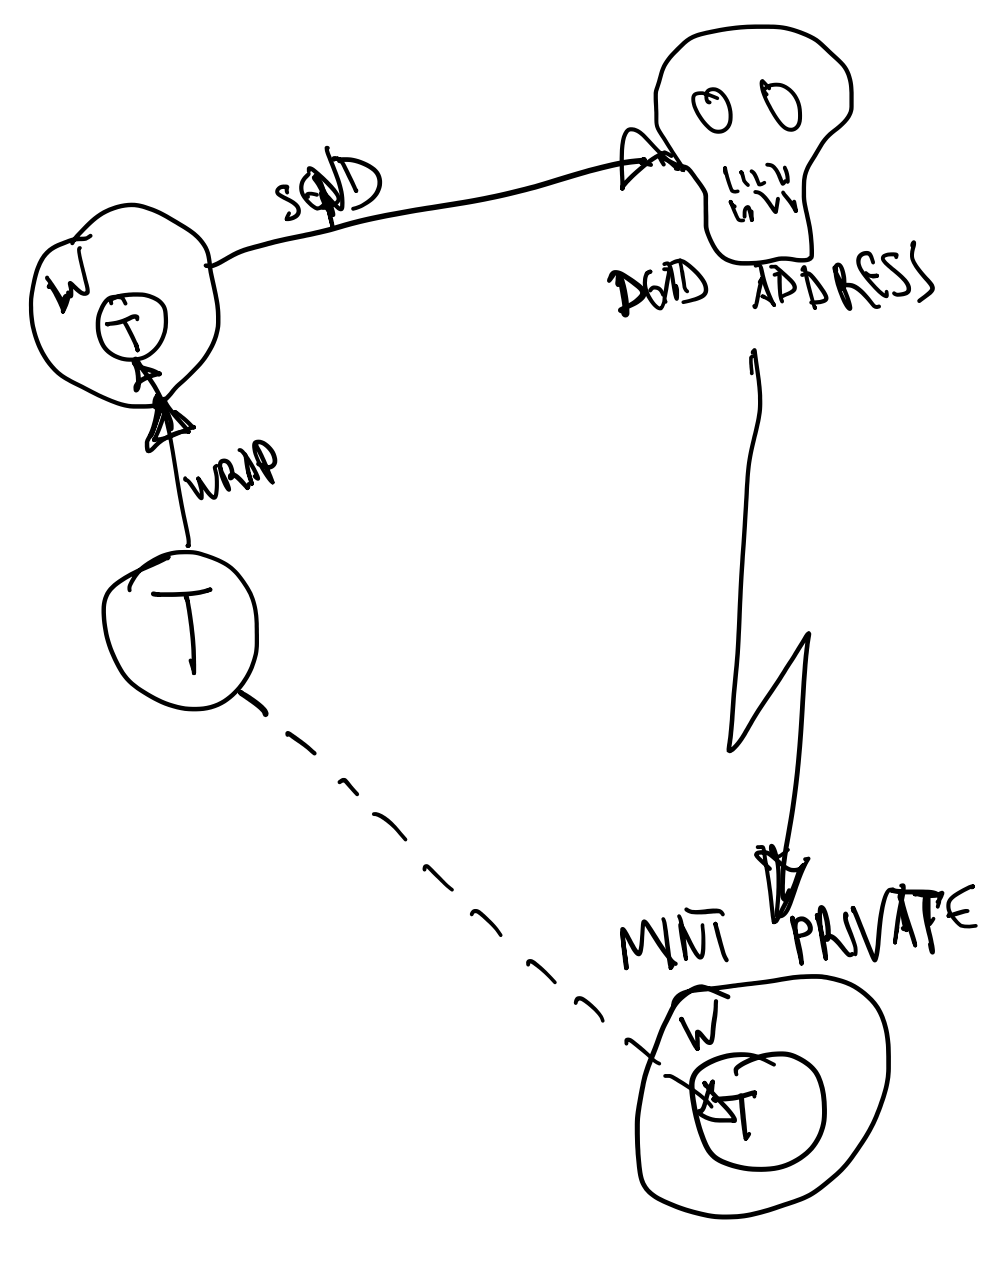 SEND
W
T
DEAD ADDRESS
WRAP
T
MINT PRIVATE
W
T